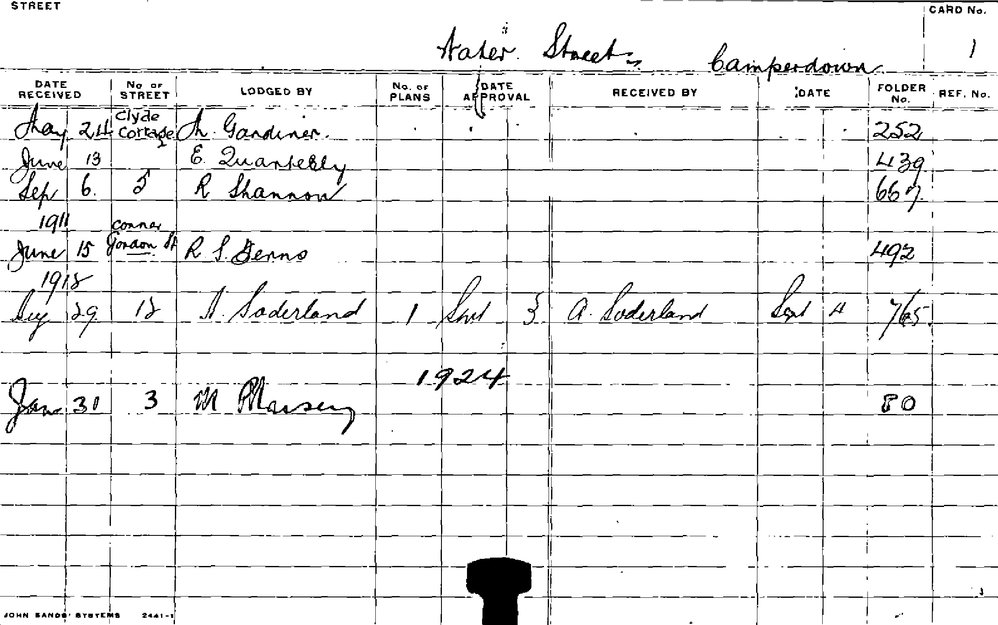 STREET
CARD No.
Water Street Camperdown
1
DATE RECEIVED No OF STREET LODGED BY No. OF PLANS DATE APPROVAL RECEIVED BY DATE FOLDER No. REF. No.
Clyde
May 24 Cottage Gardiner. 252
June 13 E. Quarterly 439
Sep 6. 5 R Shannon 667.
1911 corner
June 15 Gordon St R S. 492
1912
Aug 29 12 A. Soderland 1 Sept 3 A. Soderland Sept 4 7/65.
1924
Jan 31 3 M 80
JOHN SANDS' SYSTEMS 2441-1